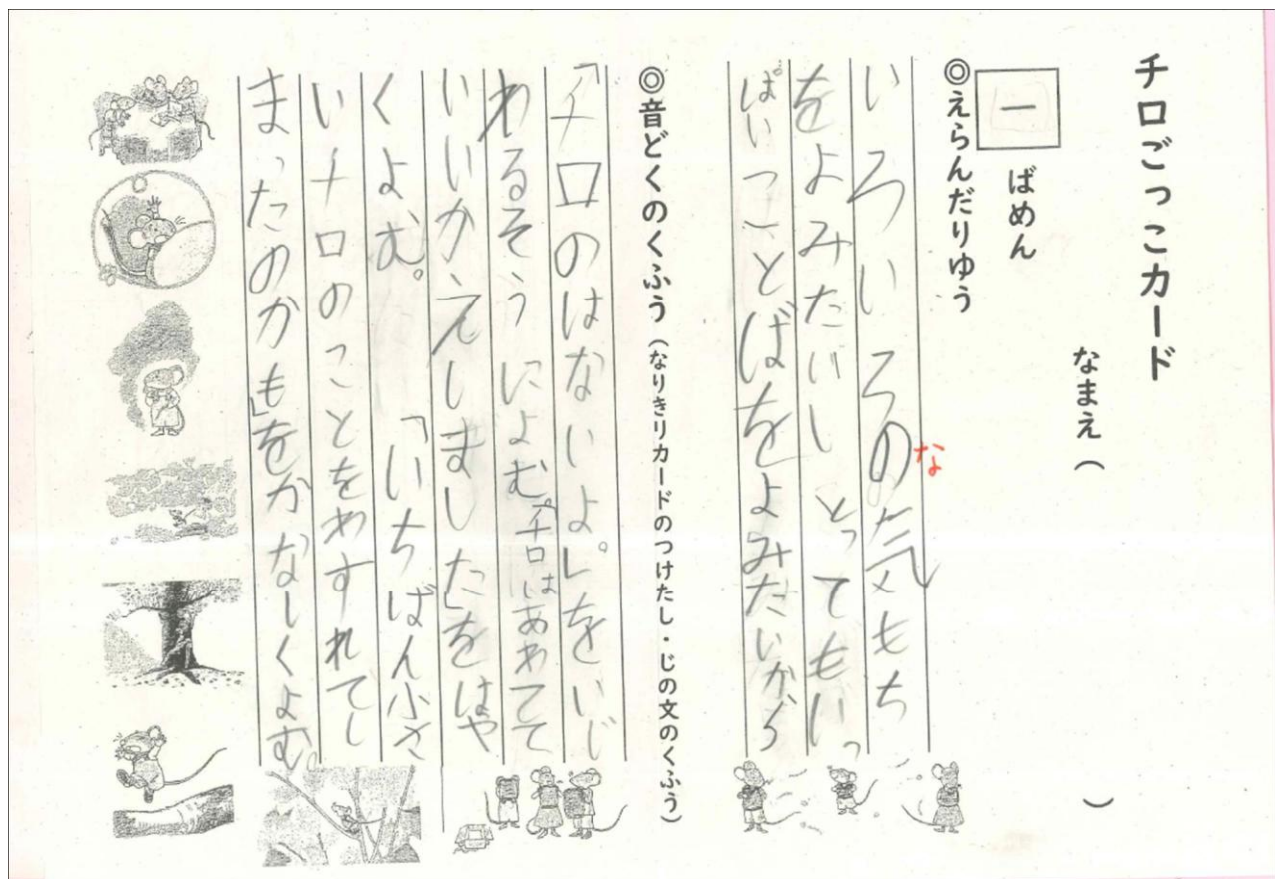 チロごっこカード
なまえ（　　　）
一 ばめん
◎えらんだりゆう
いろいろの気もち
な
をよみたいし とってもいっ
ぱいことばをよみたいから
◎音どくのくふう（なりきりカードのつけたし・じの文のくふう）
「チロのはないよ。」をいじ
わるそうによむ。「チロはあわてて
いいかえしました」をはや
くよむ。「いちばん小さ
いチロのことをわすれてし
まったのかも」をかなしくよむ。